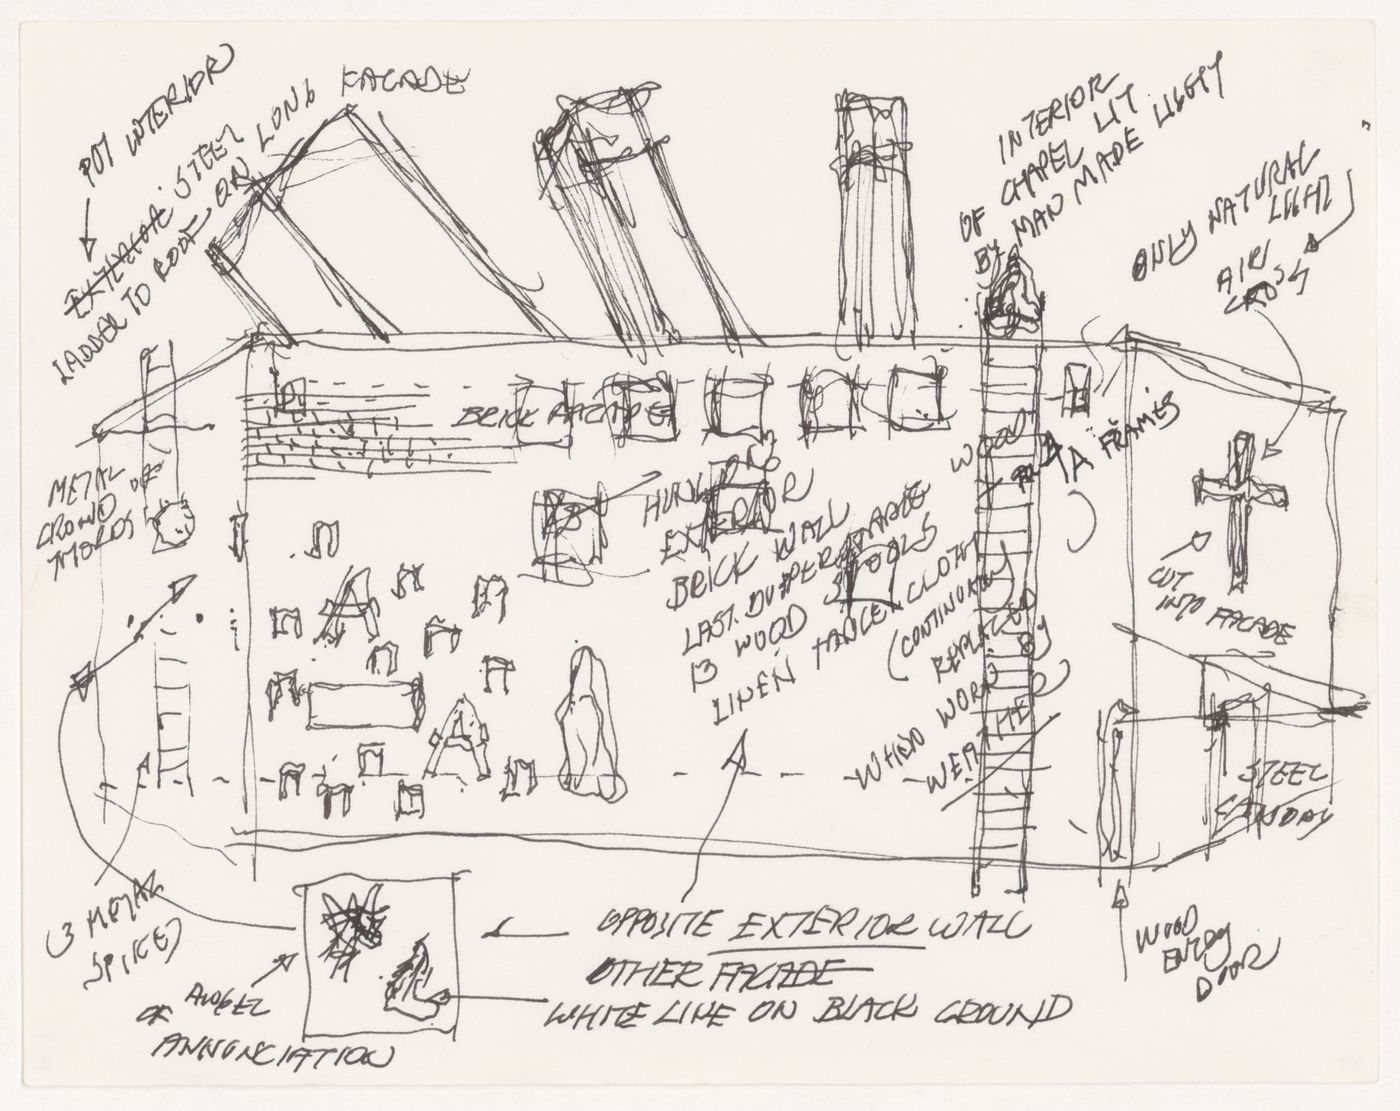 PUT INTERIOR
STEEL
LADDER TO ROOF OR
ON LONG FACADE
INTERIOR
OF CHAPEL LIT
BY MAN MADE LIGHT
ONLY NATURAL
LIGHT
AIR
CROSS
BRICK FACADE
METAL
CROWN OF
THORNS
HUNG ON
EXTERIOR
BRICK WALL
LAST SUPPER TABLE
13 WOOD STOOLS
LINEN HANGEN CLOTH
(CONTINUALLY
REPLACED
BY
WHEN WORN
WEATHER
WOOD
FRAMES
CUT
INTO FACADE
STEEL
(3 METAL
SPIKES)
WOOD
ENTRY
DOOR
OPPOSITE EXTERIOR WALL
OTHER FACADE
WHITE LINE ON BLACK GROUND
ANGEL
OF
ANNUNCIATION